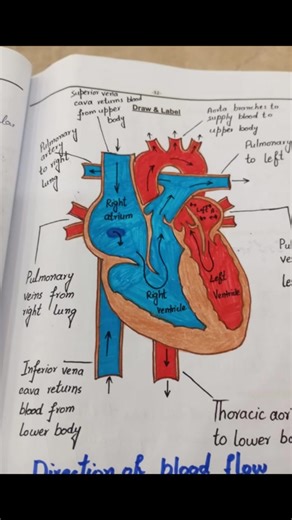 Superior vena
cava returns blood
from upper
body
Draw & Label
Aorta branches to
supply blood to
upper body
Pulmonary
artery
to right
lung
Pulmonary
to left
Right
atrium
Left
Pulmonary
veins from
right lung
Right
ventricle
Left
Ventricle
Pu
ve
le
Inferior vena
cava returns
blood from
lower body
Thoracic aor
to lower b
Direction of blood flow